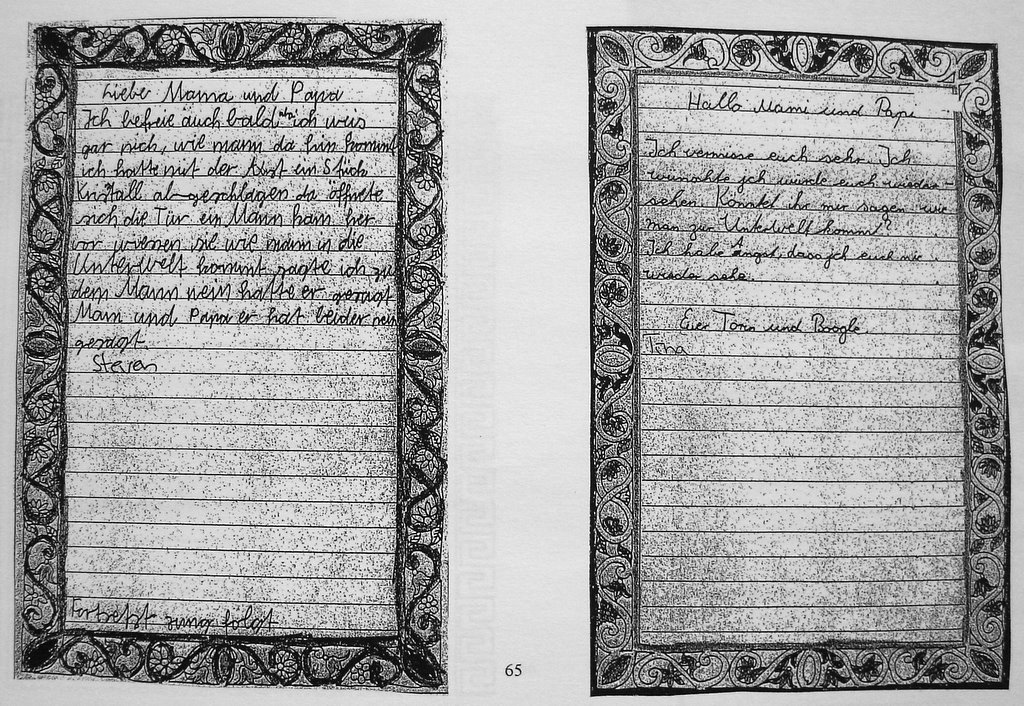 Liebe Mama und Papa
Ich befreie auch bald aba ich weis
gar nich, wie mann da hin kommt
ich hatte mit der Axt ein Stück
Kristall ab-geschlagen da öffnete
sich die Tür ein Mann kam her
vor wiesen sie wie mann in die
Unterwelt kommt sagte ich zu
dem Mann nein hatte er gesagt
Mam und Papa er hat beider nein
gesagt
Steven
Fortsetzt zung folgt
65
Hallo Mami und Papi
Ich vermisse euch sehr. Ich
wünschte ich würde euch wieder-
sehen. Könntet ihr mir sagen wie
man zur Unterwelt kommt?
Ich habe Angst, dass ich euch nie
wieda sehe.
Eier Toris und Boogle
Tina